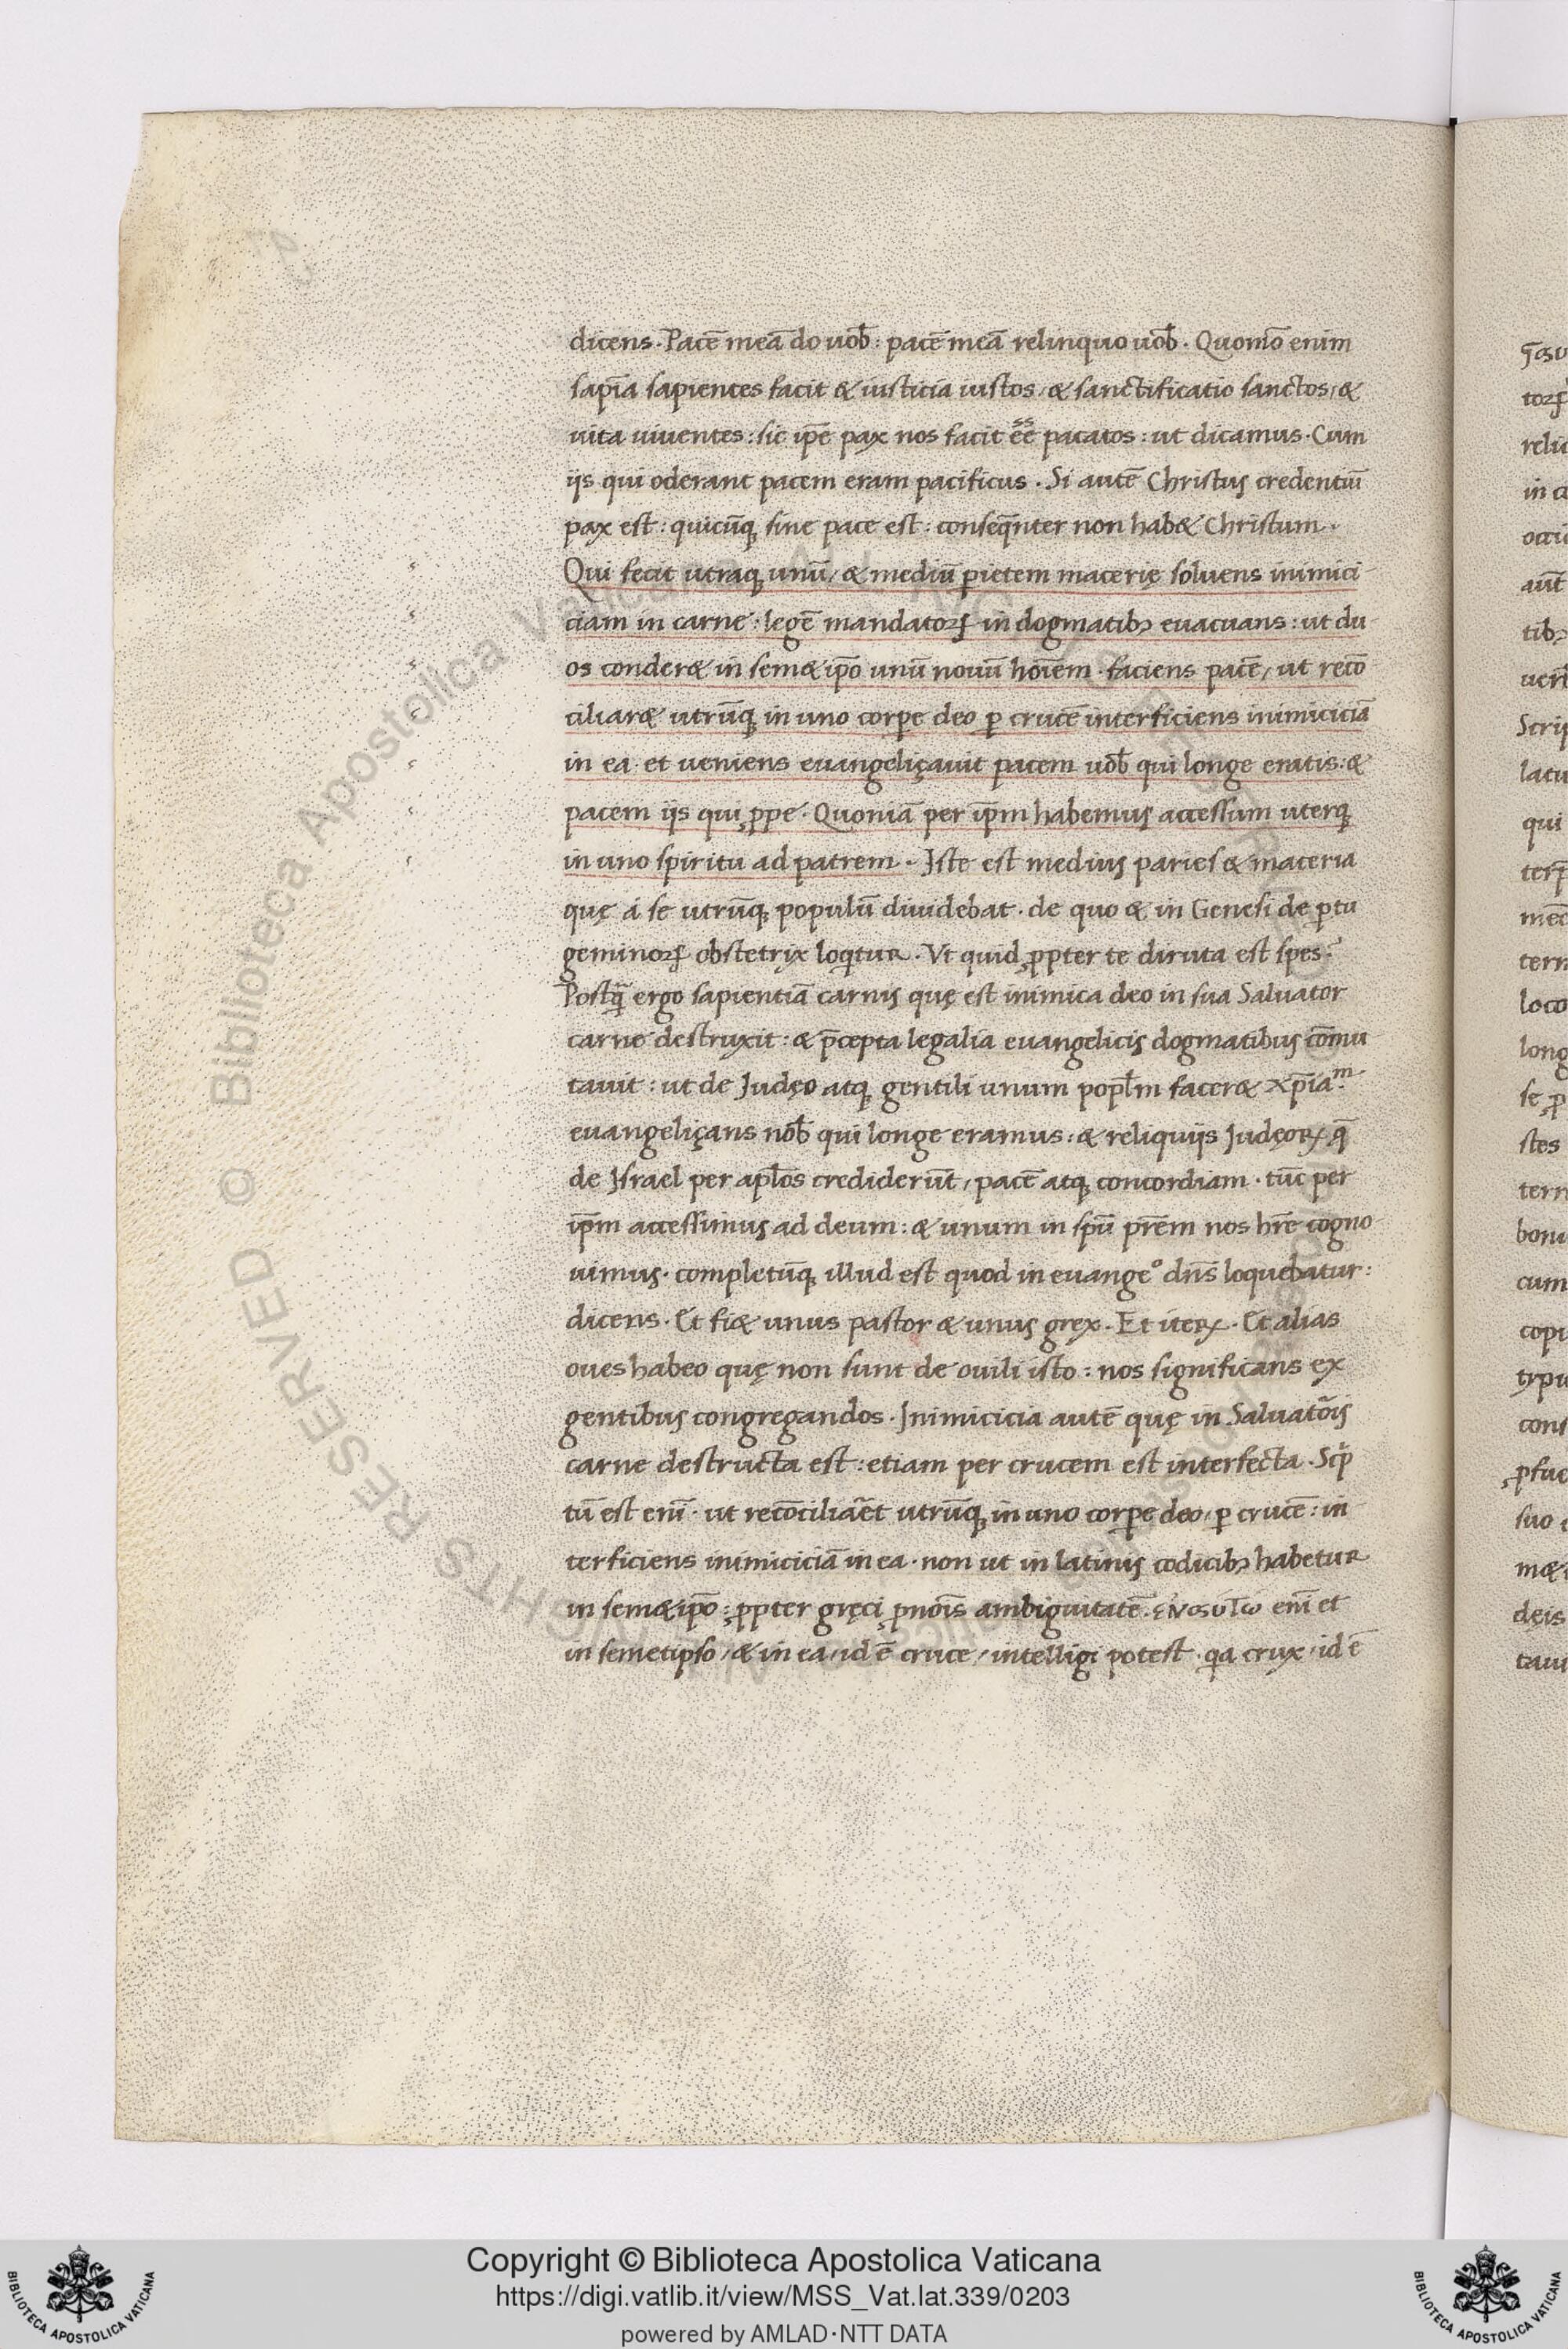 dicens. Pacē meā do uob̄: pacē meā relinquo uob̄. Quom̄o enim
sap̄ia sapientes facit & iusticia iustos, & sanctificatio sanctos, &
uita uiuentes: sic ip̄e pax nos facit ēē pacatos: ut dicamus. Cum
iis qui oderant pacem eram pacificus. Si autē Christus credentiū
pax est: quicūq; sine pace est: conseq̄nter non hab& Christum.
Qui fecit utraq; unū, & mediū ꝑietem macerię soluens inimici
ciam in carne: legē mandatoꝝ in dogmatibꝫ euacuans: ut du
os conder& in sem&ip̄o unū nouū hoīem. faciens pacē, ut recō
ciliar& utrūq; in uno corꝑe deo ꝑ crucē interficiens inimiciciā
in ea. et ueniens euangeliçauit pacem uob̄ qui longe eratis: &
pacem iis qui ꝓpe. Quoniā per ip̄m habemus accessum uterq;
in uno spiritu ad patrem. Iste est medius paries & maceria
quę á se utrūq; populū diuidebat. de quo & in Genesi de ꝑtu
geminoꝝ obstetrix loqitur. Vt quid ꝓpter te diruta est spes?
Postq̄ ergo sapientiā carnis quę est inimica deo in sua Saluator
carne destruxit: & p̄cepta legalia euangelicis dogmatibus cōmu
tauit: ut de Judęo atq; gentili unum popl̄m facer& xp̄iaᵐ.
euangeliçans nob̄ qui longe eramus: & reliquiis Judęoꝝ q̄
de Israel per apl̄os crediderūt, pacē atq; concordiam. tūc per
ip̄m accessimus ad deum: & unum in sp̄u pr̄em nos hr̄e cogno
uimus. completūq; illud est quod in euange° dn̄s loquebatur:
dicens. Et fi& unus pastor & unus grex. Et iteꝝ. Et alias
oues habeo quę non sunt de ouili isto: nos significans ex
gentibus congregandos. Inimicicia autē quę in Saluatōis
carne destructa est: etiam per crucem est interfecta. Scͥp
tū est enī. ut recōciliāet utrūq; in uno corꝑe deo, ꝑ crucē: in
terficiens inimiciciā in ea. non ut in latinis codicibꝫ habetur
in sem&ip̄o: ꝓpter gręci ꝓnōis ambiguitatē. ἐν αυτω enī et
in semetipso, & in ea, id ē cruce, intelligi potest. qa crux, id ē
Copyright © Biblioteca Apostolica Vaticana
https://digi.vatlib.it/view/MSS_Vat.lat.339/0203
powered by AMLAD·NTT DATA